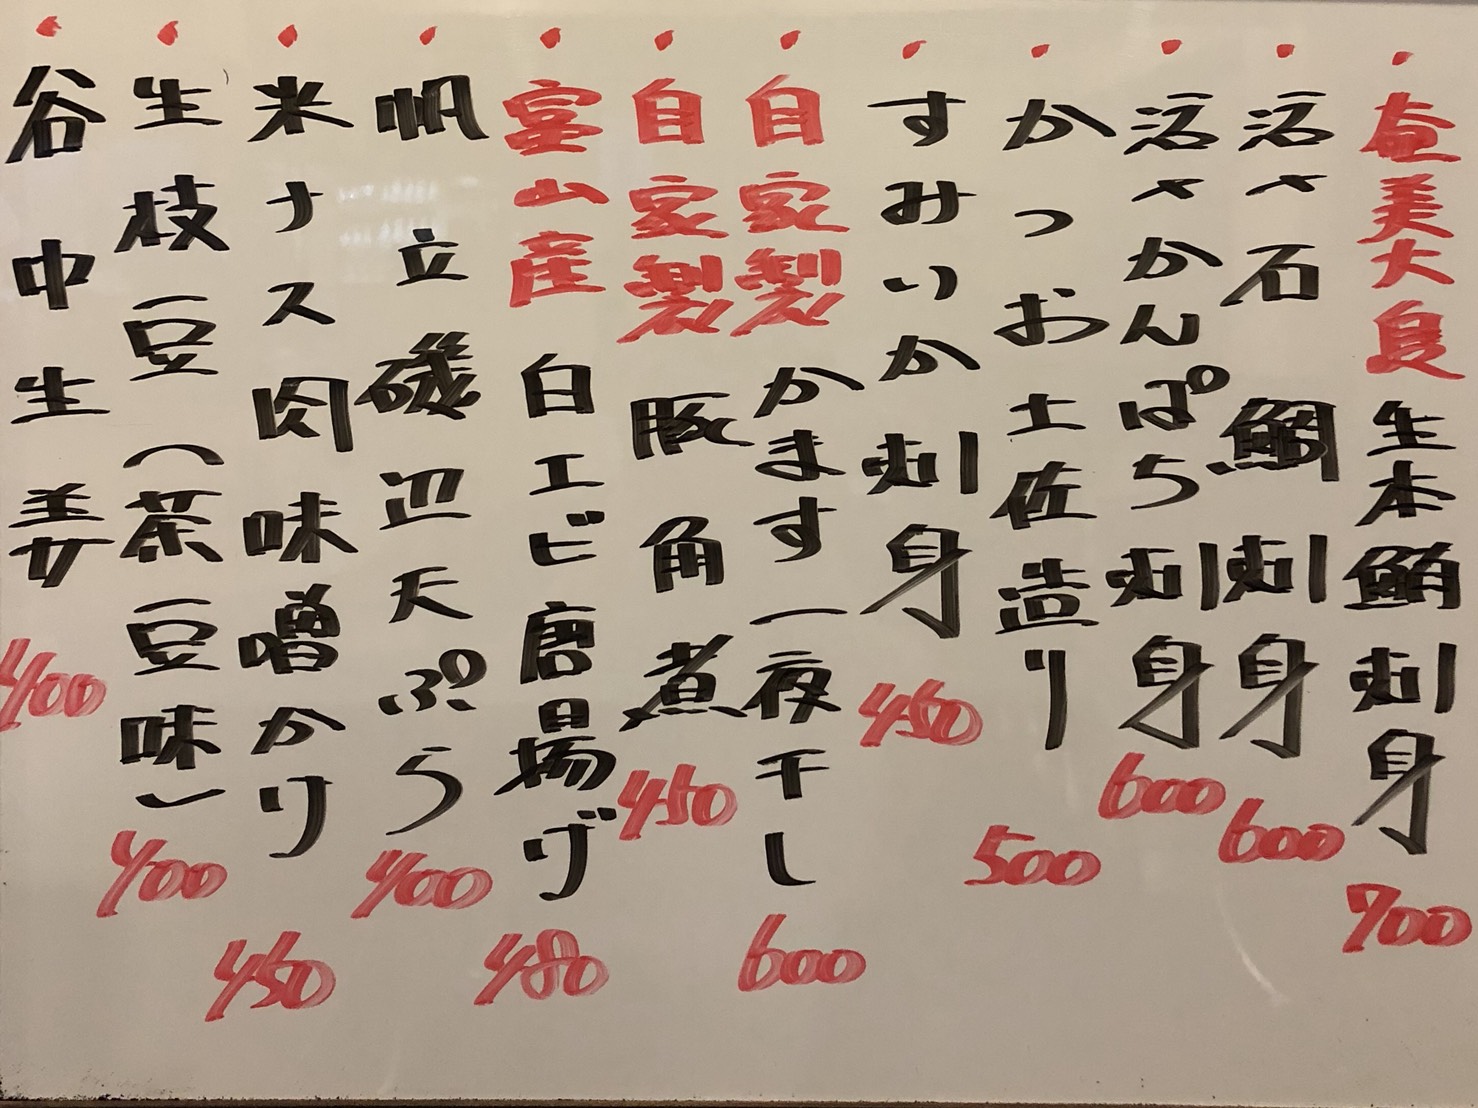 奄美大島 生本鮪刺身 700
活〆石鯛刺身 600
活〆かんぱち刺身 600
かつお土佐造り 500
すみいか刺身 450
自家製 かます一夜干し 600
自家製 豚角煮 450
富山産 白エビ唐揚げ 480
帆立磯辺天ぷら 400
米ナス肉味噌かけ 450
生枝豆（茶豆味） 400
谷中生姜 400